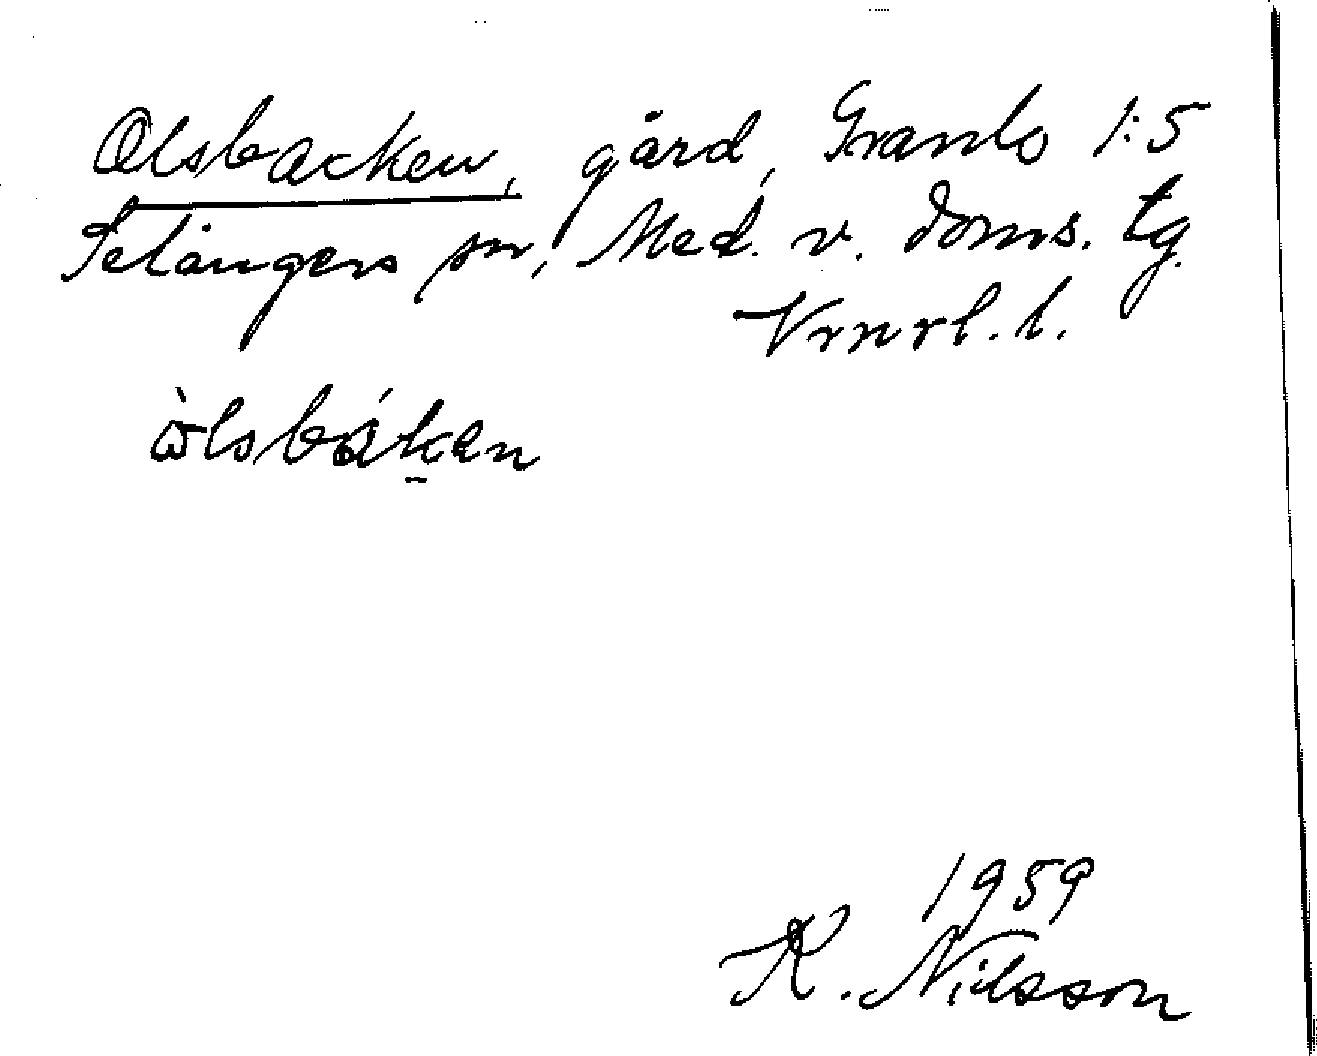 Olsbacken, gård, Granlo 1:5
Selångers sn, Med. v. doms. tg.
Vrnrl. l.
ὼlsbáken
1959
K. Nilsson